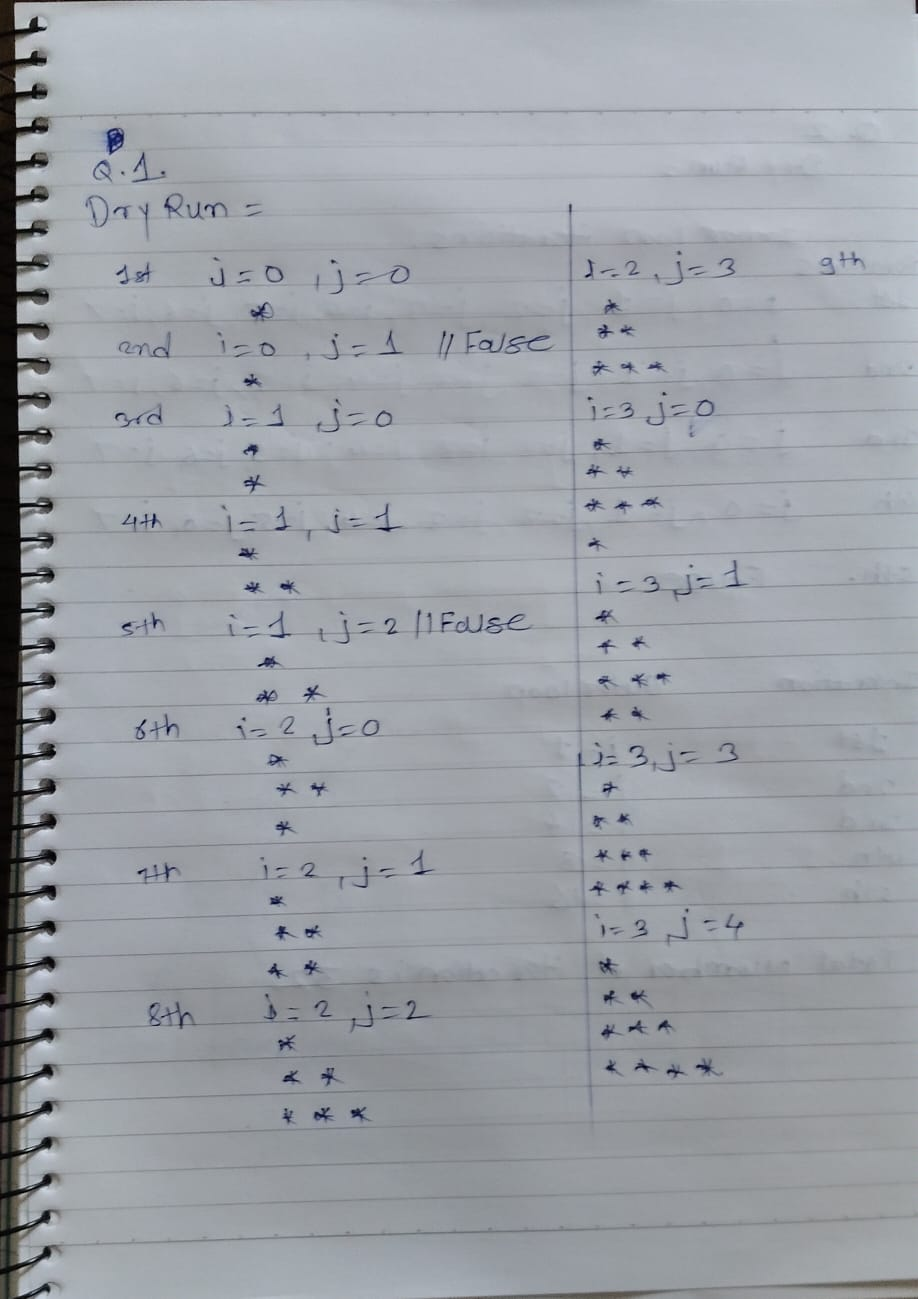 Q.1.
Dry Run =
1st i=0 , j=0
*
2nd i=0 , j=1 // False
*
3rd i=1 , j=0
*
*
4th i=1 , j=1
*
* *
5th i=1 , j=2 // False
*
* *
6th i=2 , j=0
*
* *
*
7th i=2 , j=1
*
* *
* *
8th i=2 , j=2
*
* *
* * *
i=2 , j=3 9th
*
* *
* * *
i=3 , j=0
*
* *
* * *
*
i=3 , j=1
*
* *
* * *
* *
i=3 , j=3
*
* *
* * *
* * * *
i=3 , j=4
*
* *
* * *
* * * *